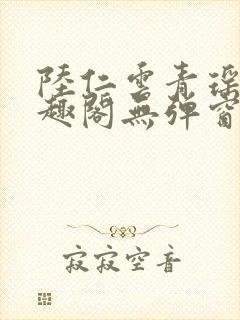 陸仁雲青瑶
趣閣無彈窗
寂寂空音